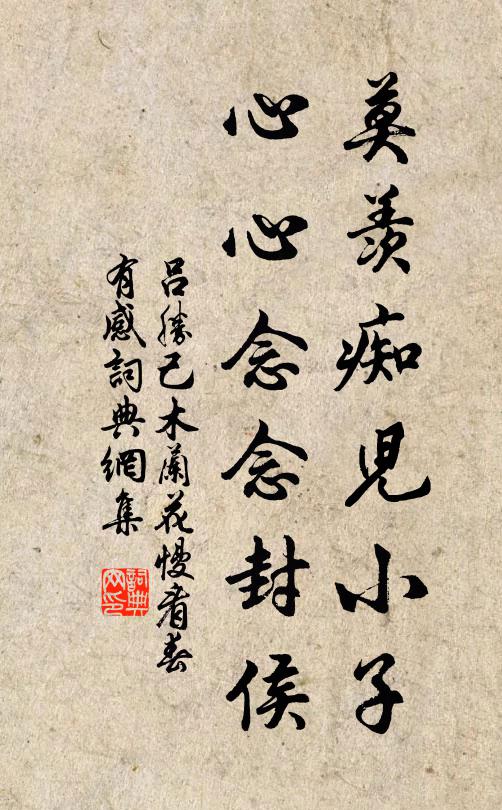 莫羨痴兒小子
心心念念封侯
呂勝己木蘭花慢看春
有感詞典網集
詞典
网印